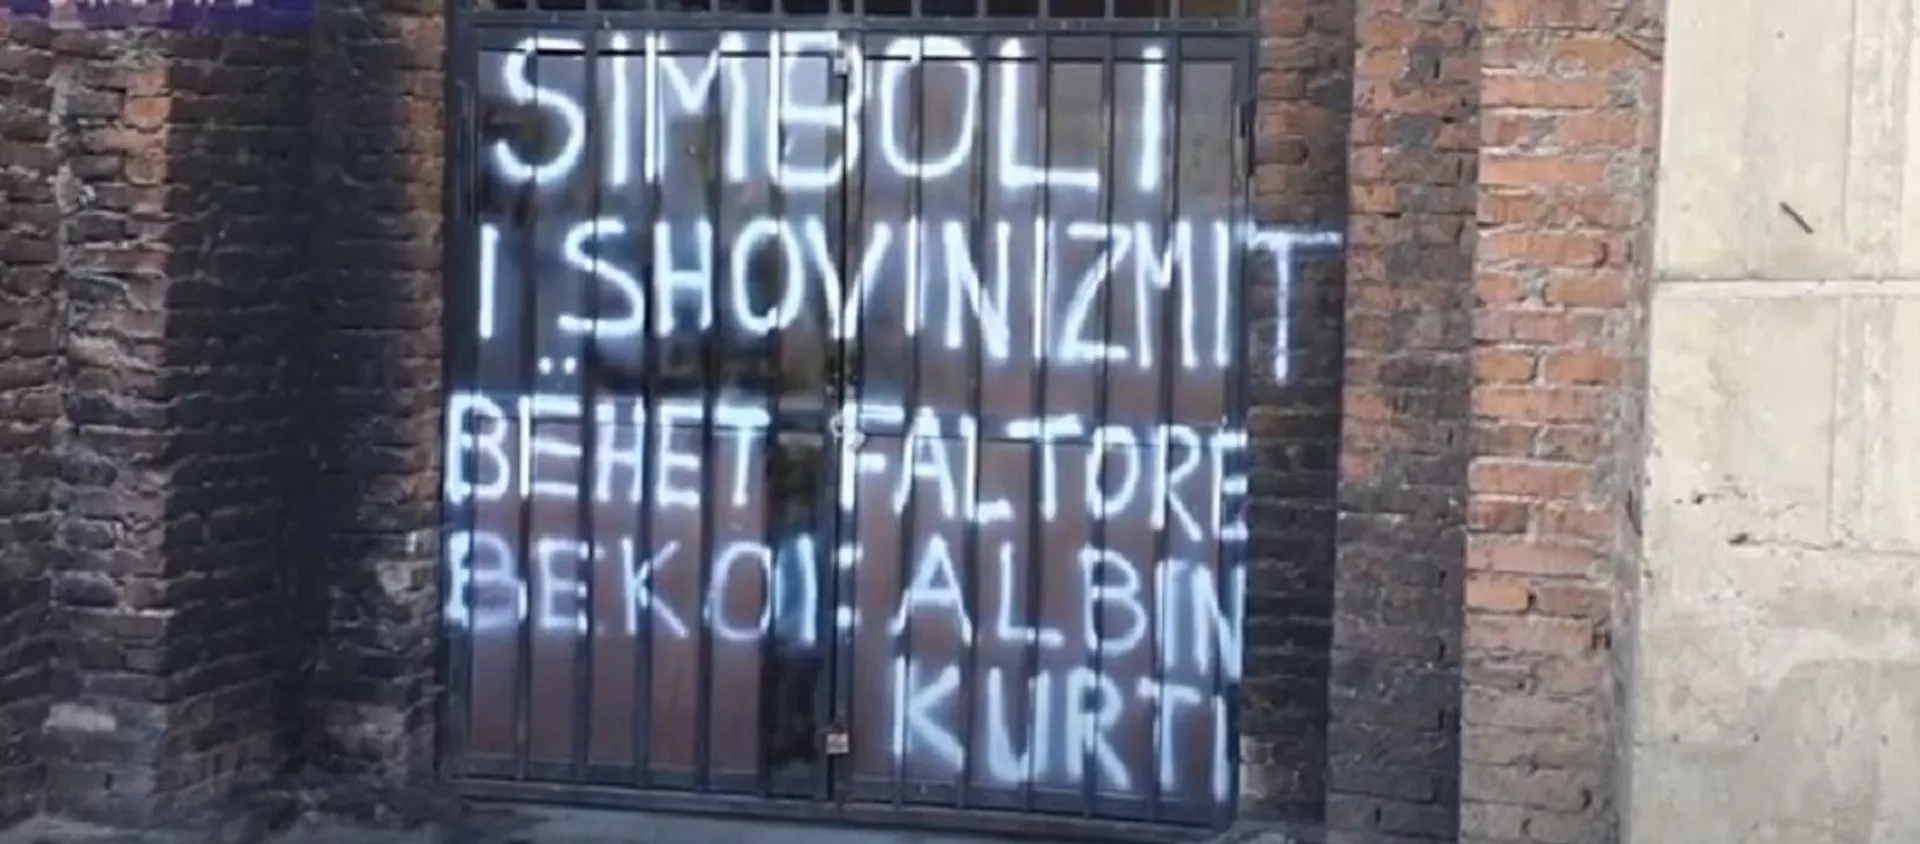 SIMBOLI
I SHOVINIZMIT
BËHET FALTORE
BEKOI: ALBIN
KURTI